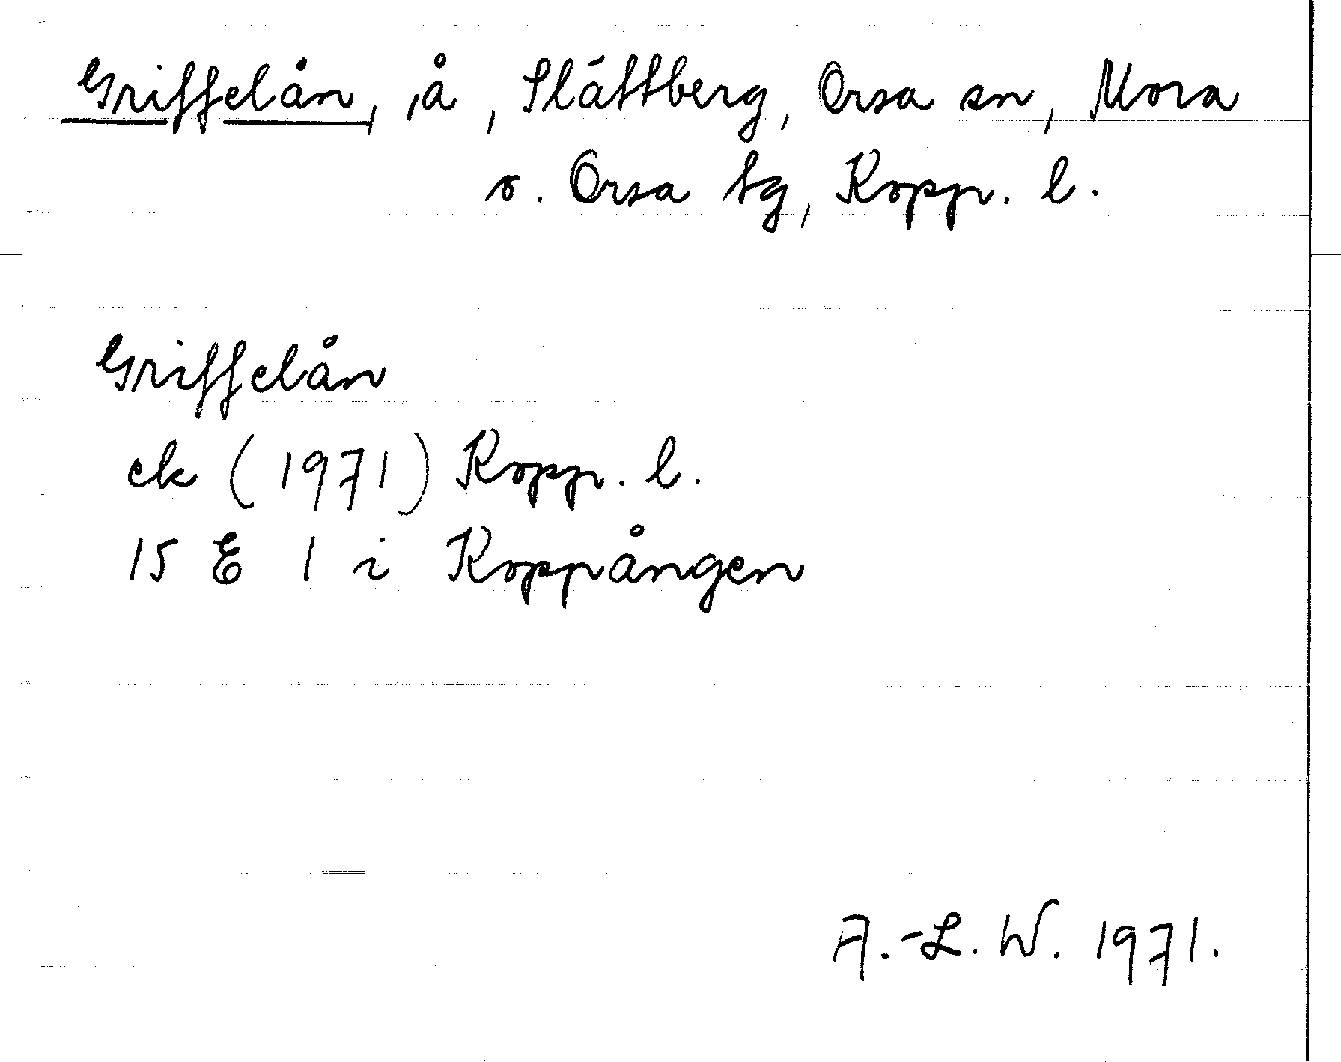 Griffelån, å, Slättberg, Orsa sn, Mora
o. Orsa tg, Kopp. l.
Griffelån
ek (1971) Kopp. l.
15 E 1 i Koppången
A.-L. W. 1971.